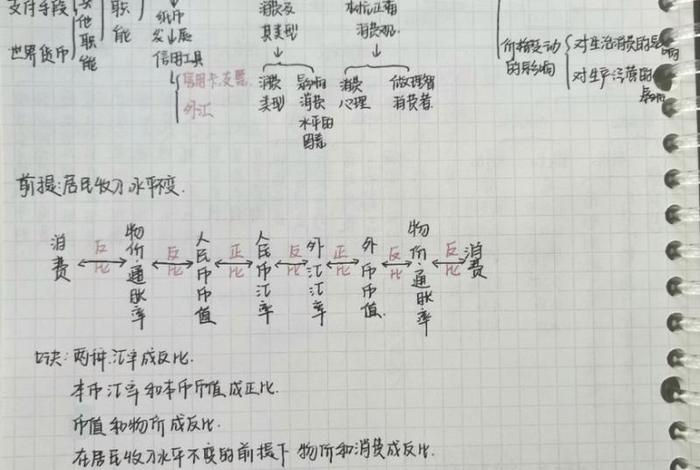 支付手段
其他职能
职能
世界货币
纸币
发展
信用工具
信用卡、支票
外汇
消费及其类型
树立正确消费观
消费类型
影响消费水平的因素
消费心理
做理智消费者
价格变动的影响
对生活消费的影响
对生产经营的影响
前提:居民收入水平不变.
消费 反比 物价·通胀率 反比 人民币币值 正比 人民币汇率 反比 外汇汇率 正比 外币币值 反比 物价·通胀率 反比 消费
口诀:两种汇率成反比.
本币汇率和本币币值成正比.
币值和物价成反比.
在居民收入水平不变的前提下 物价和消费成反比.